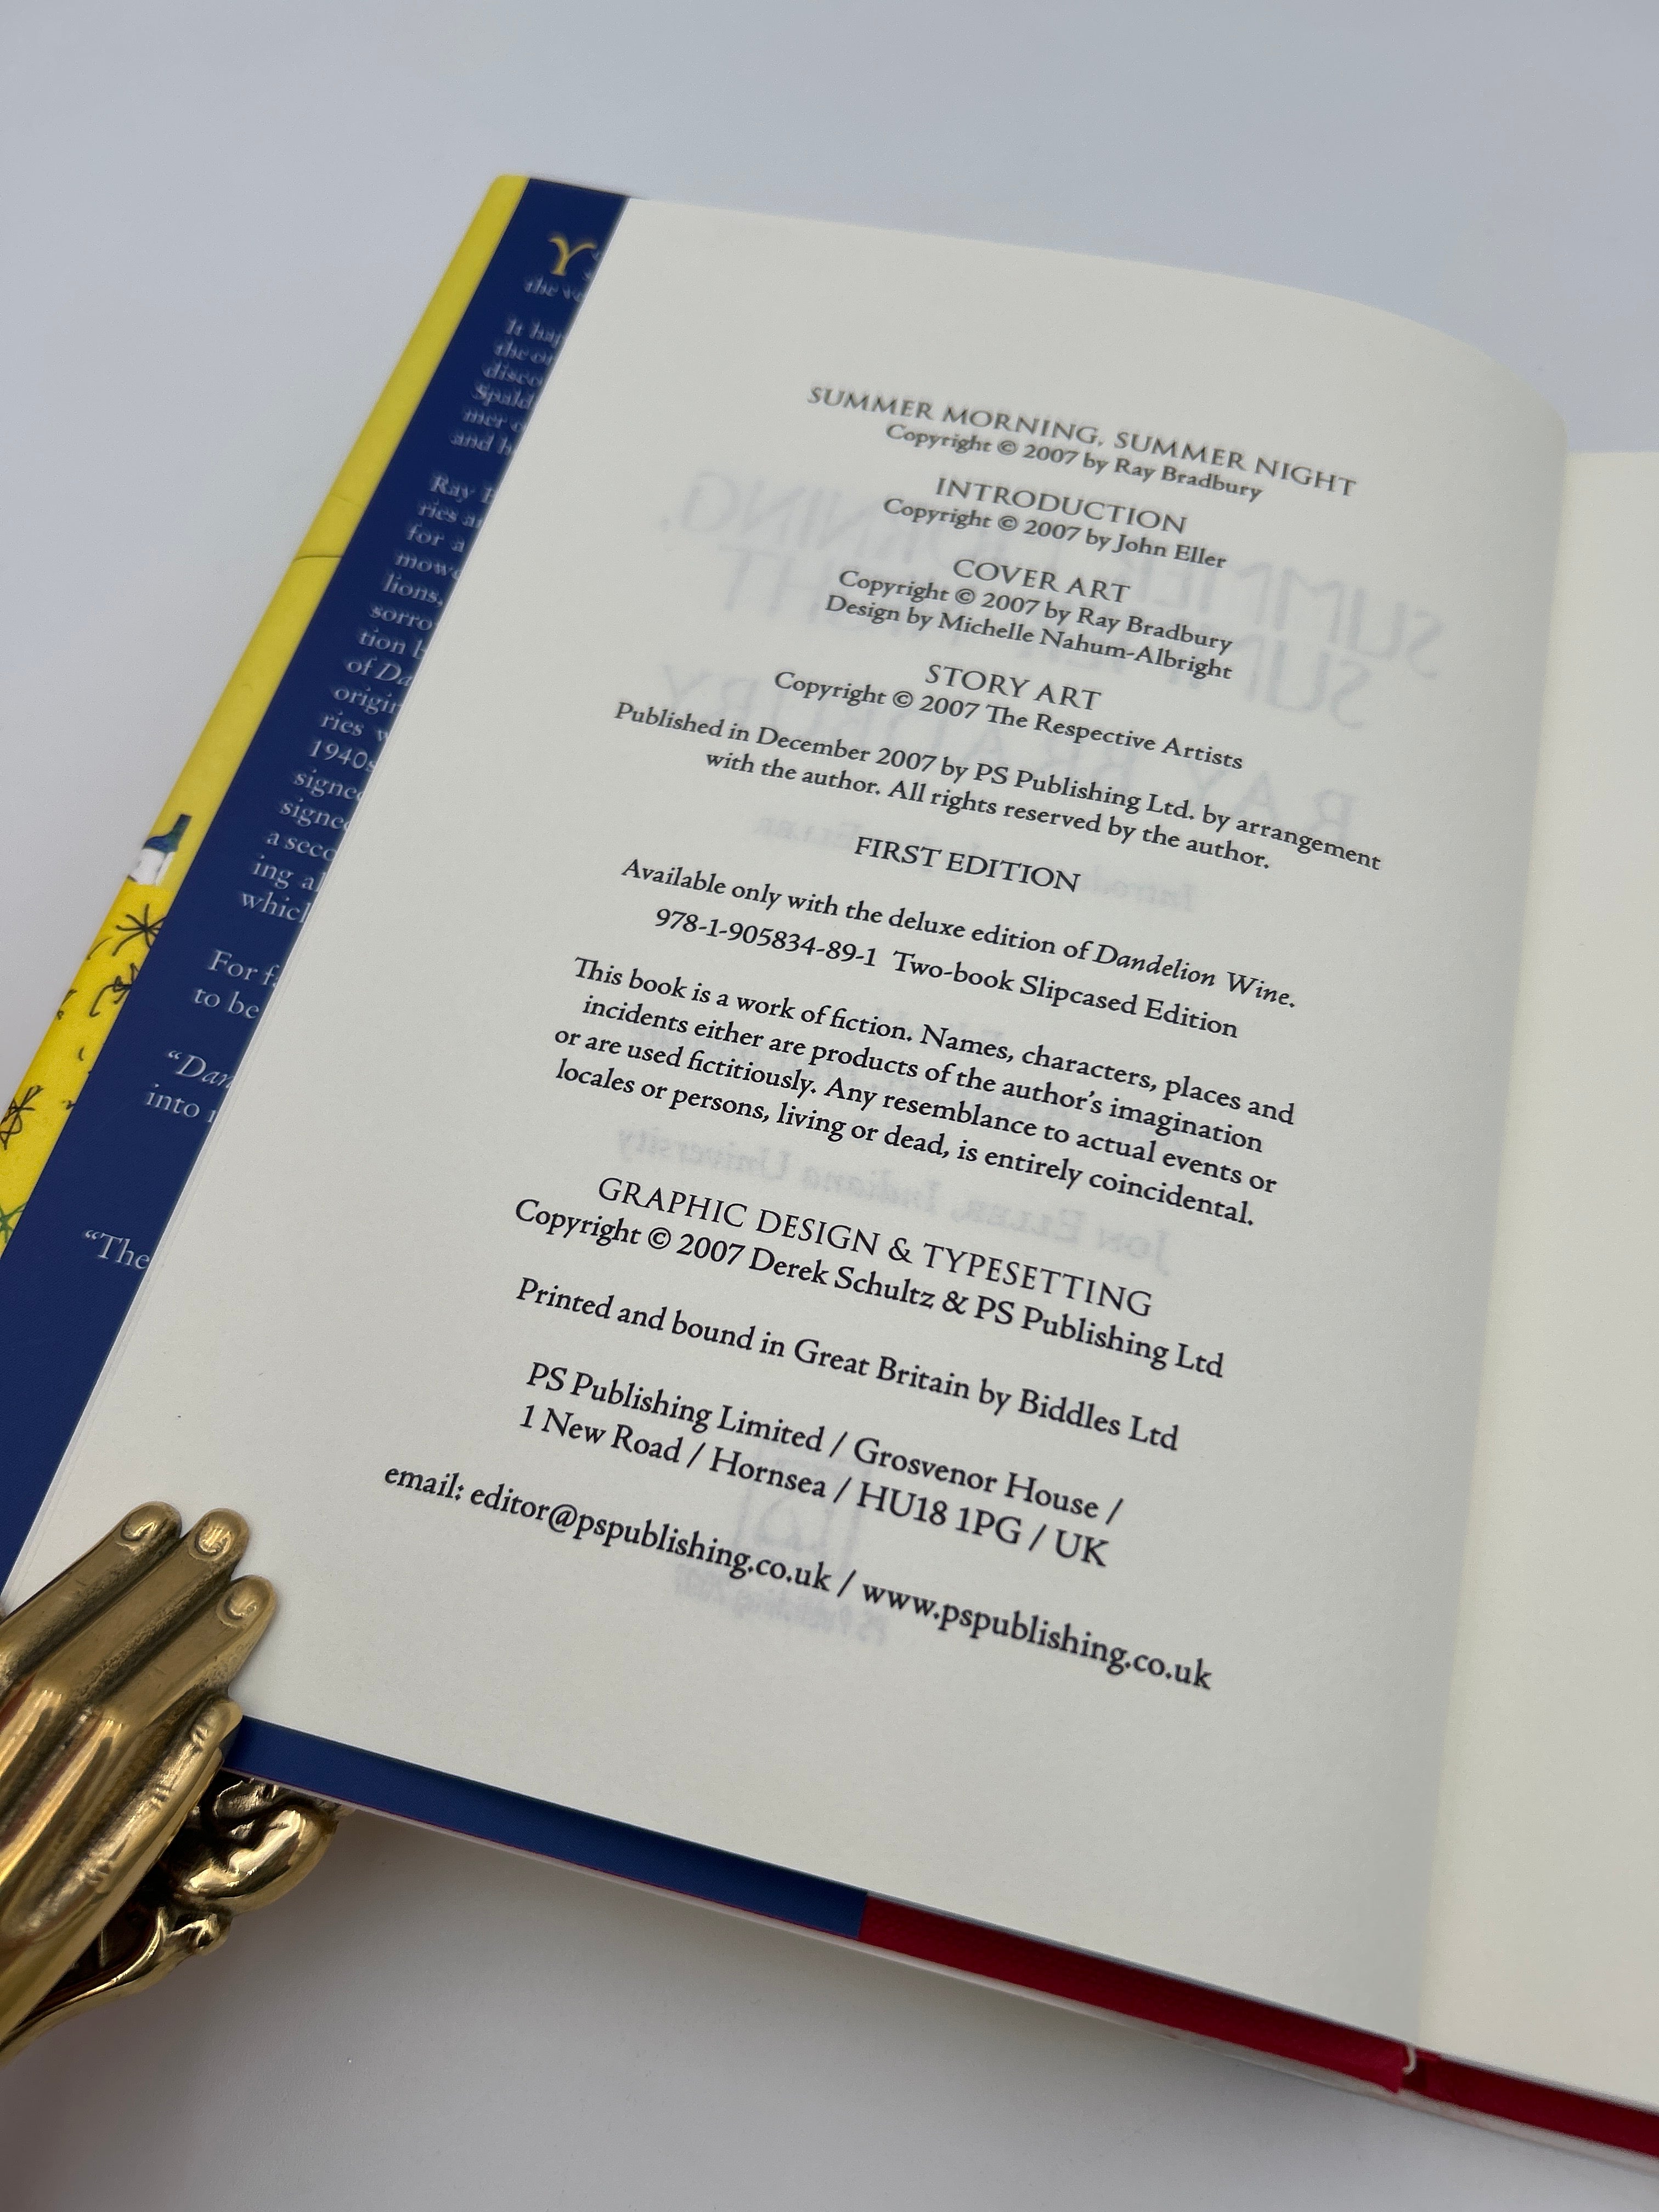 Y
the
It hap
the
disco
Spald
mer
and h
Ray
ries
for a
mow
lions,
sorro
tion
of Da
origin
ries
1940s
signe
signe
a seco
ing al
which
For f
to be
“Dan
into
“The
SUMMER MORNING, SUMMER NIGHT
Copyright © 2007 by Ray Bradbury
INTRODUCTION
Copyright © 2007 by John Eller
COVER ART
Copyright © 2007 by Ray Bradbury
Design by Michelle Nahum-Albright
STORY ART
Copyright © 2007 The Respective Artists
Published in December 2007 by PS Publishing Ltd. by arrangement
with the author. All rights reserved by the author.
FIRST EDITION
Available only with the deluxe edition of Dandelion Wine.
978-1-905834-89-1 Two-book Slipcased Edition
This book is a work of fiction. Names, characters, places and
incidents either are products of the author’s imagination
or are used fictitiously. Any resemblance to actual events or
locales or persons, living or dead, is entirely coincidental.
GRAPHIC DESIGN & TYPESETTING
Copyright © 2007 Derek Schultz & PS Publishing Ltd
Printed and bound in Great Britain by Biddles Ltd
PS Publishing Limited / Grosvenor House /
1 New Road / Hornsea / HU18 1PG / UK
email: editor@pspublishing.co.uk / www.pspublishing.co.uk